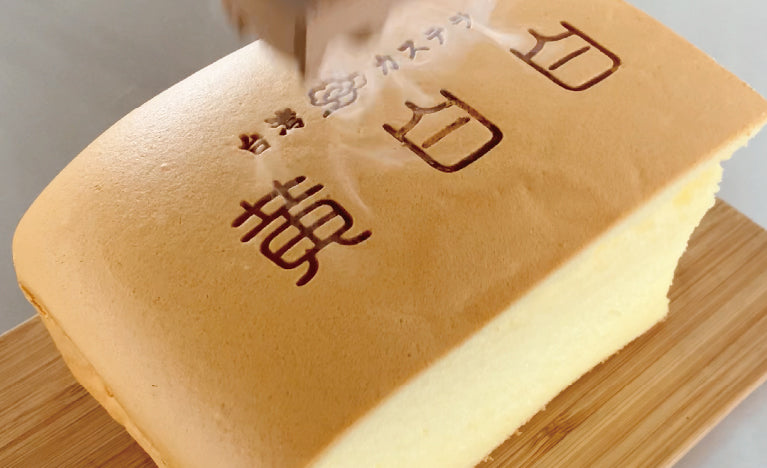 台湾 カステラ
黄白白